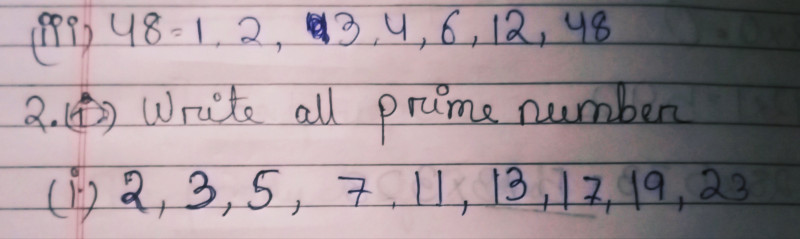 (iii) 48 = 1, 2, 3, 4, 6, 12, 48
2. (i) Write all prime number
(i) 2, 3, 5, 7, 11, 13, 17, 19, 23